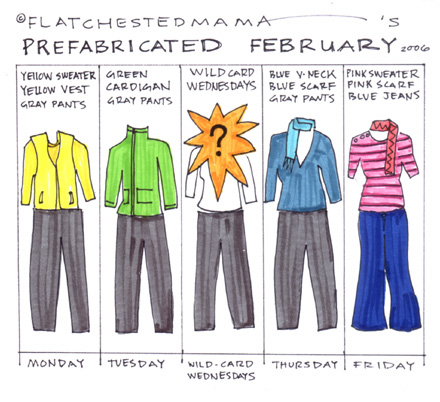 © FLATCHESTEDMAMA 'S
PREFABRICATED FEBRUARY 2006
YELLOW SWEATER
YELLOW VEST
GRAY PANTS
GREEN
CARDIGAN
GRAY PANTS
WILD CARD
WEDNESDAYS
BLUE V-NECK
BLUE SCARF
GRAY PANTS
PINK SWEATER
PINK SCARF
BLUE JEANS
?
MONDAY
TUESDAY
WILD-CARD
WEDNESDAYS
THURSDAY
FRIDAY